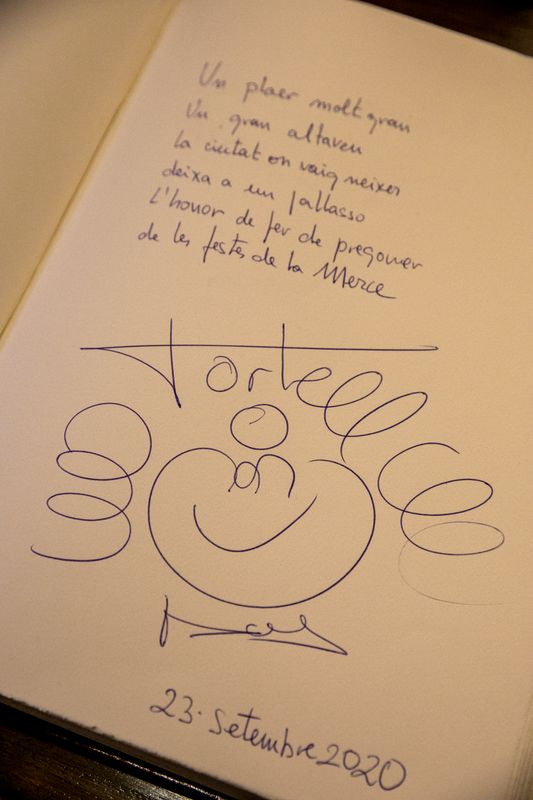 Un plaer molt gran
Un gran altaveu
la ciutat on vaig neixer
deixa a un pallasso
l'honor de fer de pregoner
de les festes de la Merce
Tortell
Poltrona
23. Setembre 2020